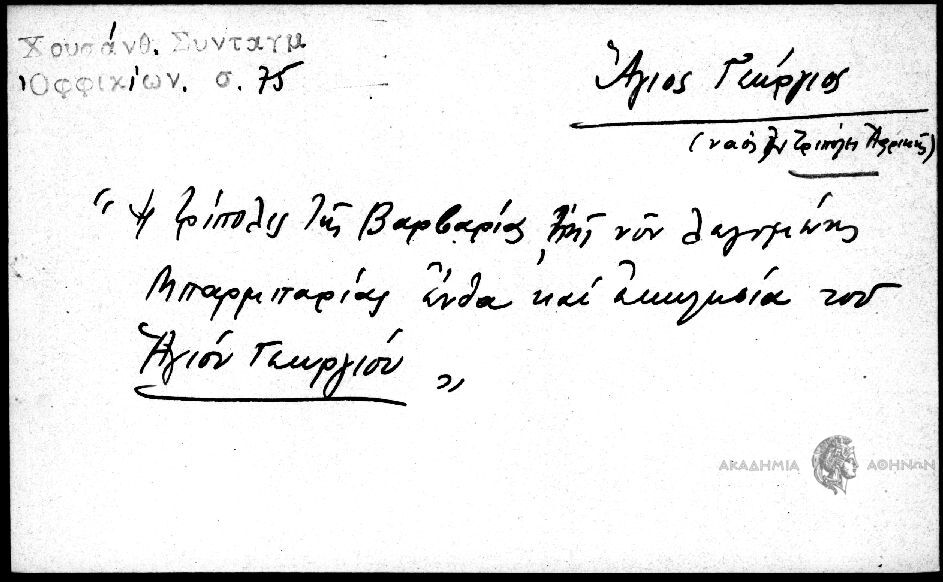 Χρυσάνθ. Συνταγμ
Ὀφφικίων. σ. 75
Ἅγιος Γεώργιος
(ναὸς ἐν Τριπόλει Ἀφρικῆς)
“ ἡ Τρίπολις τῆς Βαρβαρίας τῆς νῦν λεγομένης
Μπαρμπαρίας ἔνθα καὶ ἐκκλησία τοῦ
Ἁγίου Γεωργίου „
ΑΚΑΔΗΜΙΑ ΑΘΗΝΩΝ